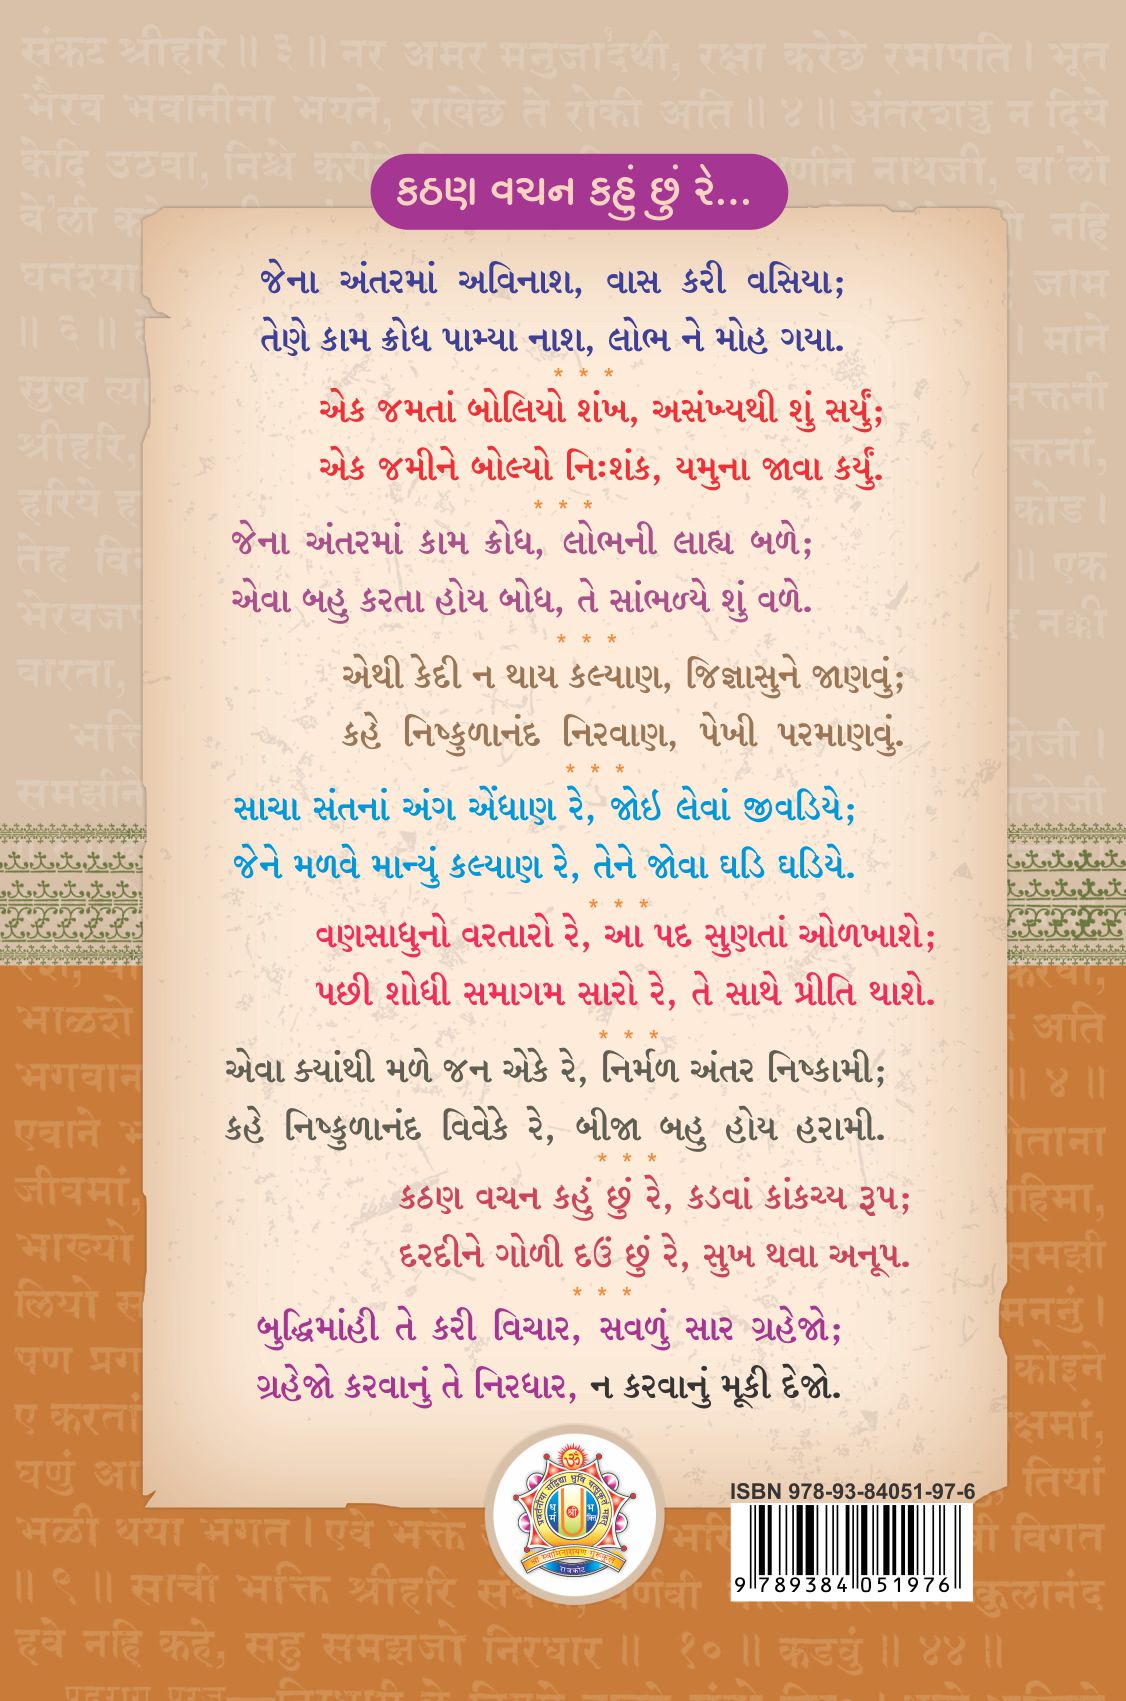 કઠણ વચન કહું છું રે...
જેના અંતરમાં અવિનાશ, વાસ કરી વસિયા;
તેણે કામ ક્રોધ પામ્યા નાશ, લોભ ને મોહ ગયા.
* * *
એક જમતાં બોલિયો શંખ, અસંખ્યથી શું સર્યું;
એક જમીને બોલ્યો નિઃશંક, યમુના જાવા કર્યું.
* * *
જેના અંતરમાં કામ ક્રોધ, લોભની લાહ્ય બળે;
એવા બહુ કરતા હોય બોધ, તે સાંભળ્યે શું વળે.
* * *
એથી કેદી ન થાય કલ્યાણ, જિજ્ઞાસુને જાણવું;
કહે નિષ્કુળાનંદ નિરવાણ, પેખી પરમાણવું.
* * *
સાચા સંતનાં અંગ એંધાણ રે, જોઇ લેવાં જીવડિયે;
જેને મળવે માન્યું કલ્યાણ રે, તેને જોવા ઘડિ ઘડિયે.
* * *
વણસાધુનો વરતારો રે, આ પદ સુણતાં ઓળખાશે;
પછી શોધી સમાગમ સારો રે, તે સાથે પ્રીતિ થાશે.
* * *
એવા ક્યાંથી મળે જન એકે રે, નિર્મળ અંતર નિષ્કામી;
કહે નિષ્કુળાનંદ વિવેકે રે, બીજા બહુ હોય હરામી.
* * *
કઠણ વચન કહું છું રે, કડવાં કાંકચ્ય રૂપ;
દરદીને ગોળી દઉં છું રે, સુખ થવા અનૂપ.
* * *
બુદ્ધિમાંહી તે કરી વિચાર, સવળું સાર ગ્રહેજો;
ગ્રહેજો કરવાનું તે નિરધાર, ન કરવાનું મૂકી દેજો.
ISBN 978-93-84051-97-6
9 789384 051976